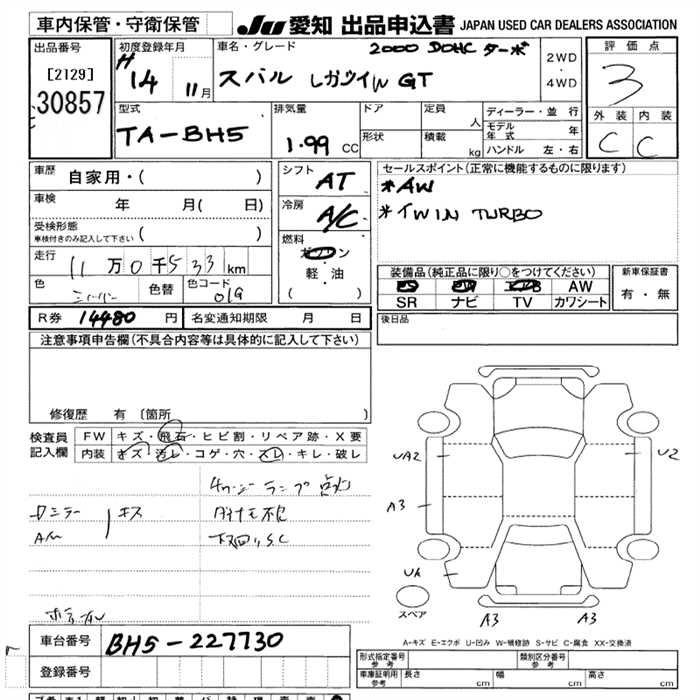 車内保管・守衛保管 JU 愛知 出品申込書 JAPAN USED CAR DEALERS ASSOCIATION
出品番号
[2129]
30857
初度登録年月
H 14 11月
車名・グレード
2000 DOHC ターボ
スバル レガツイW GT
2WD
・
4WD
評価点
3
外装 内装
C C
型式
TA-BH5
排気量
1.99 CC
ドア
形状
定員 人
積載 kg
ディーラー・並行
モデル年式 年
ハンドル 左・右
車歴 自家用・( )
車検 年 月( 日)
受検形態
車検付きのみ記入して下さい ( )
走行 11万0千533km
色 シルバー 色替 色コード 01G
シフト AT
冷房 A/C
燃料
ガソリン
・
軽・油
( )
セールスポイント(正常に機能するものに限ります)
*AW
*TWIN TURBO
装備品(純正品に限り○をつけてください)
PS PW エアB AW
SR ナビ TV カワシート
新車保証書
有・無
R券 14480 円 名変通知期限 月 日
後日品
注意事項申告欄(不具合内容等は具体的に記入して下さい)
修復歴 有 〔箇所 〕
検査員記入欄
FW キズ・飛石・ヒビ割・リペア跡・X要
内装 キズ・汚レ・コゲ・穴・スレ・キレ・破レ
チャージランプ点灯
Dミラー キズ
A/W
下回り S.C
UA2 U2
A3
UA
スペア
A3 A3
A-キズ E-エクボ U-凹み W-補修跡 S-サビ C-腐食 XX-交換済
車台番号 BH5-227730
登録番号
形式指定番号 参考
類別区分番号 参考
車庫証明用 参考 長さ cm 幅 cm 高さ cm